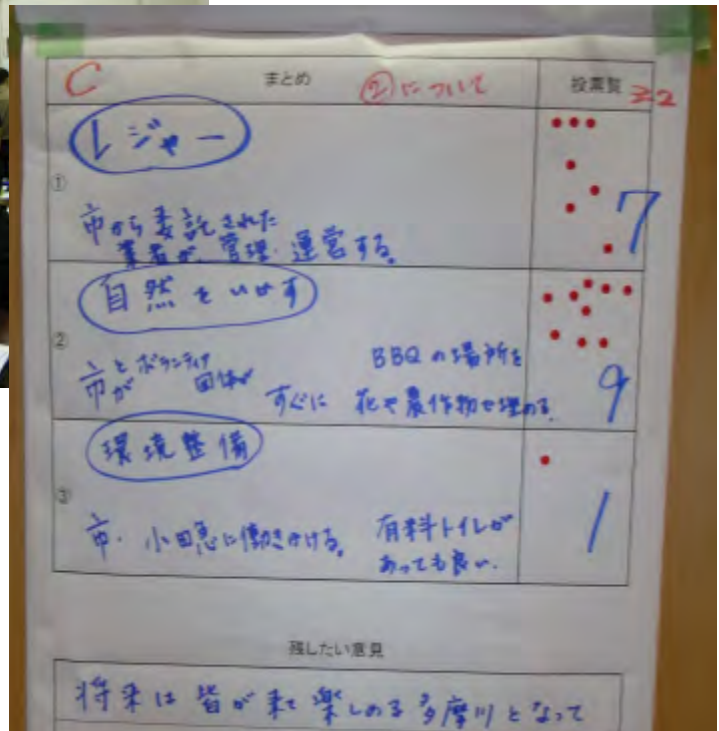 C まとめ ②について 投票覧
① レジャー
市から委託された
業者が、管理・運営する。
7
② 自然をいかす
市とボランティア
が 団体が
BBQの場所を
すぐに 花や農作物を埋める
9
③ 環境整備
市・小田急に働きかける。
有料トイレが
あっても良い。
1
残したい意見
将来は皆が来て楽しめる多摩川となって